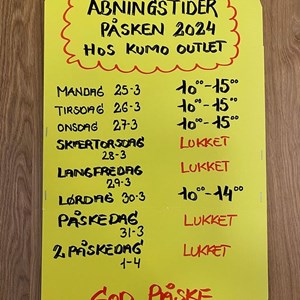 ÅBNINGSTIDER
PÅSKEN 2024
HOS KUMO OUTLET
MANDAG 25-3 10⁰⁰-15⁰⁰
TIRSDAG 26-3 10⁰⁰-15⁰⁰
ONSDAG 27-3 10⁰⁰-15⁰⁰
SKÆRTORSDAG LUKKET
28-3
LANGFREDAG LUKKET
29-3
LØRDAG 30-3 10⁰⁰-14⁰⁰
PÅSKEDAG LUKKET
31-3
2 PÅSKEDAG LUKKET
1-4
GOD PÅSKE